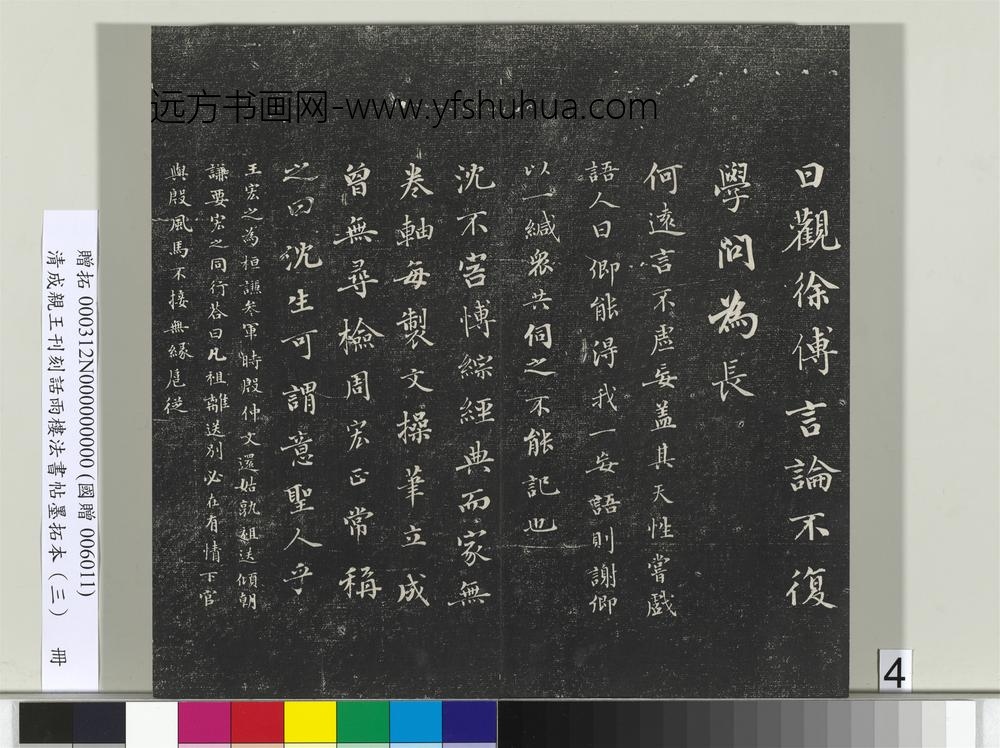 远方书画网-www.yfshuhua.com
日觀徐傅言論不復
學問為長
何遠言不虛妄蓋其天性嘗戲
語人曰卿能得我一妄語則謝卿
以一縑眾共伺之不能記也
沈不害博綜經典而家無
卷軸每製文操筆立成
曾無尋檢周宏正常稱
之曰沈生可謂意聖人乎
王宏之為桓謙參軍時殷仲文還姑孰祖送傾朝
謙要宏之同行答曰凡祖離送別必在有情下官
與殷風馬不接無緣扈從
贈拓 000312N000000000(國贈 006011)
清成親王刊刻話雨樓法書帖墨拓本(三) 冊
4